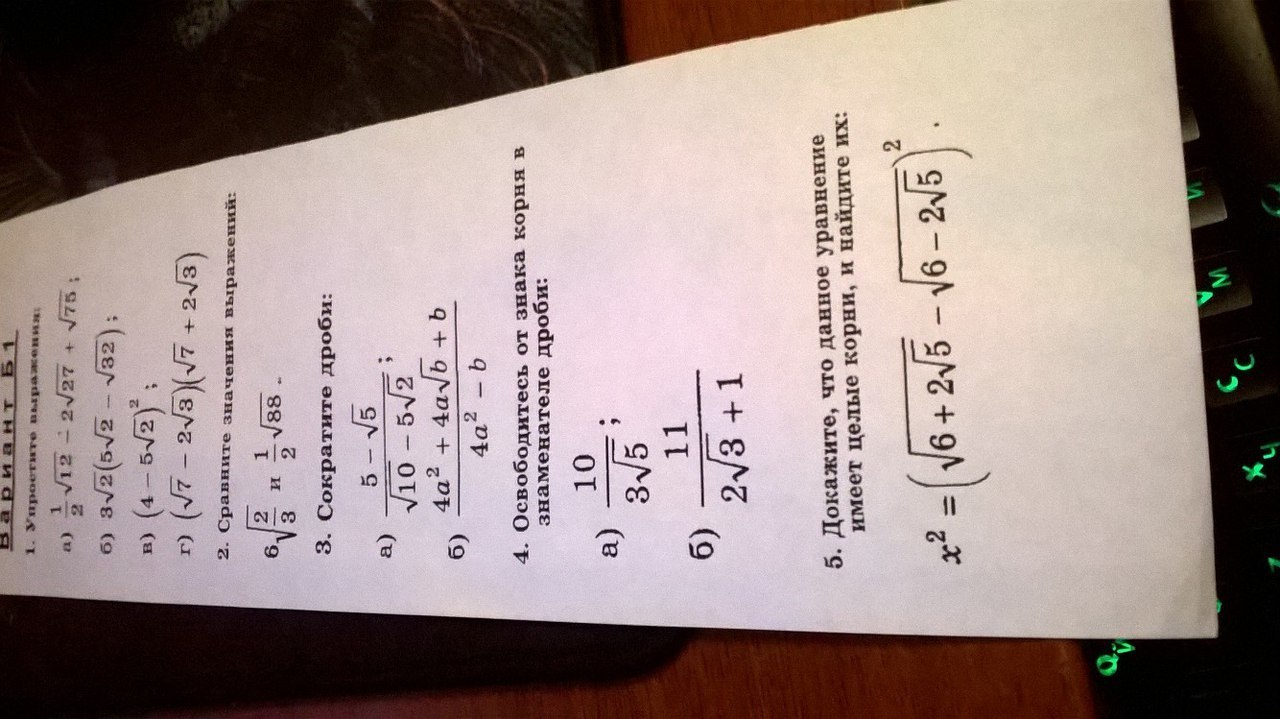 Вариант Б1
1. Упростите выражения:
а) 1/2 √12 − 2√27 + √75 ;
б) 3√2(5√2 − √32) ;
в) (4 − 5√2)² ;
г) (√7 − 2√3)(√7 + 2√3)
2. Сравните значения выражений:
6√(2/3) и 1/2 √88 .
3. Сократите дроби:
а) (5 − √5)/(√10 − 5√2) ;
б) (4a² + 4a√b + b)/(4a² − b)
4. Освободитесь от знака корня в
знаменателе дроби:
а) 10/(3√5) ;
б) 11/(2√3 + 1)
5. Докажите, что данное уравнение
имеет целые корни, и найдите их:
x² = (√(6 + 2√5) − √(6 − 2√5))² .
И
М
С
Ч